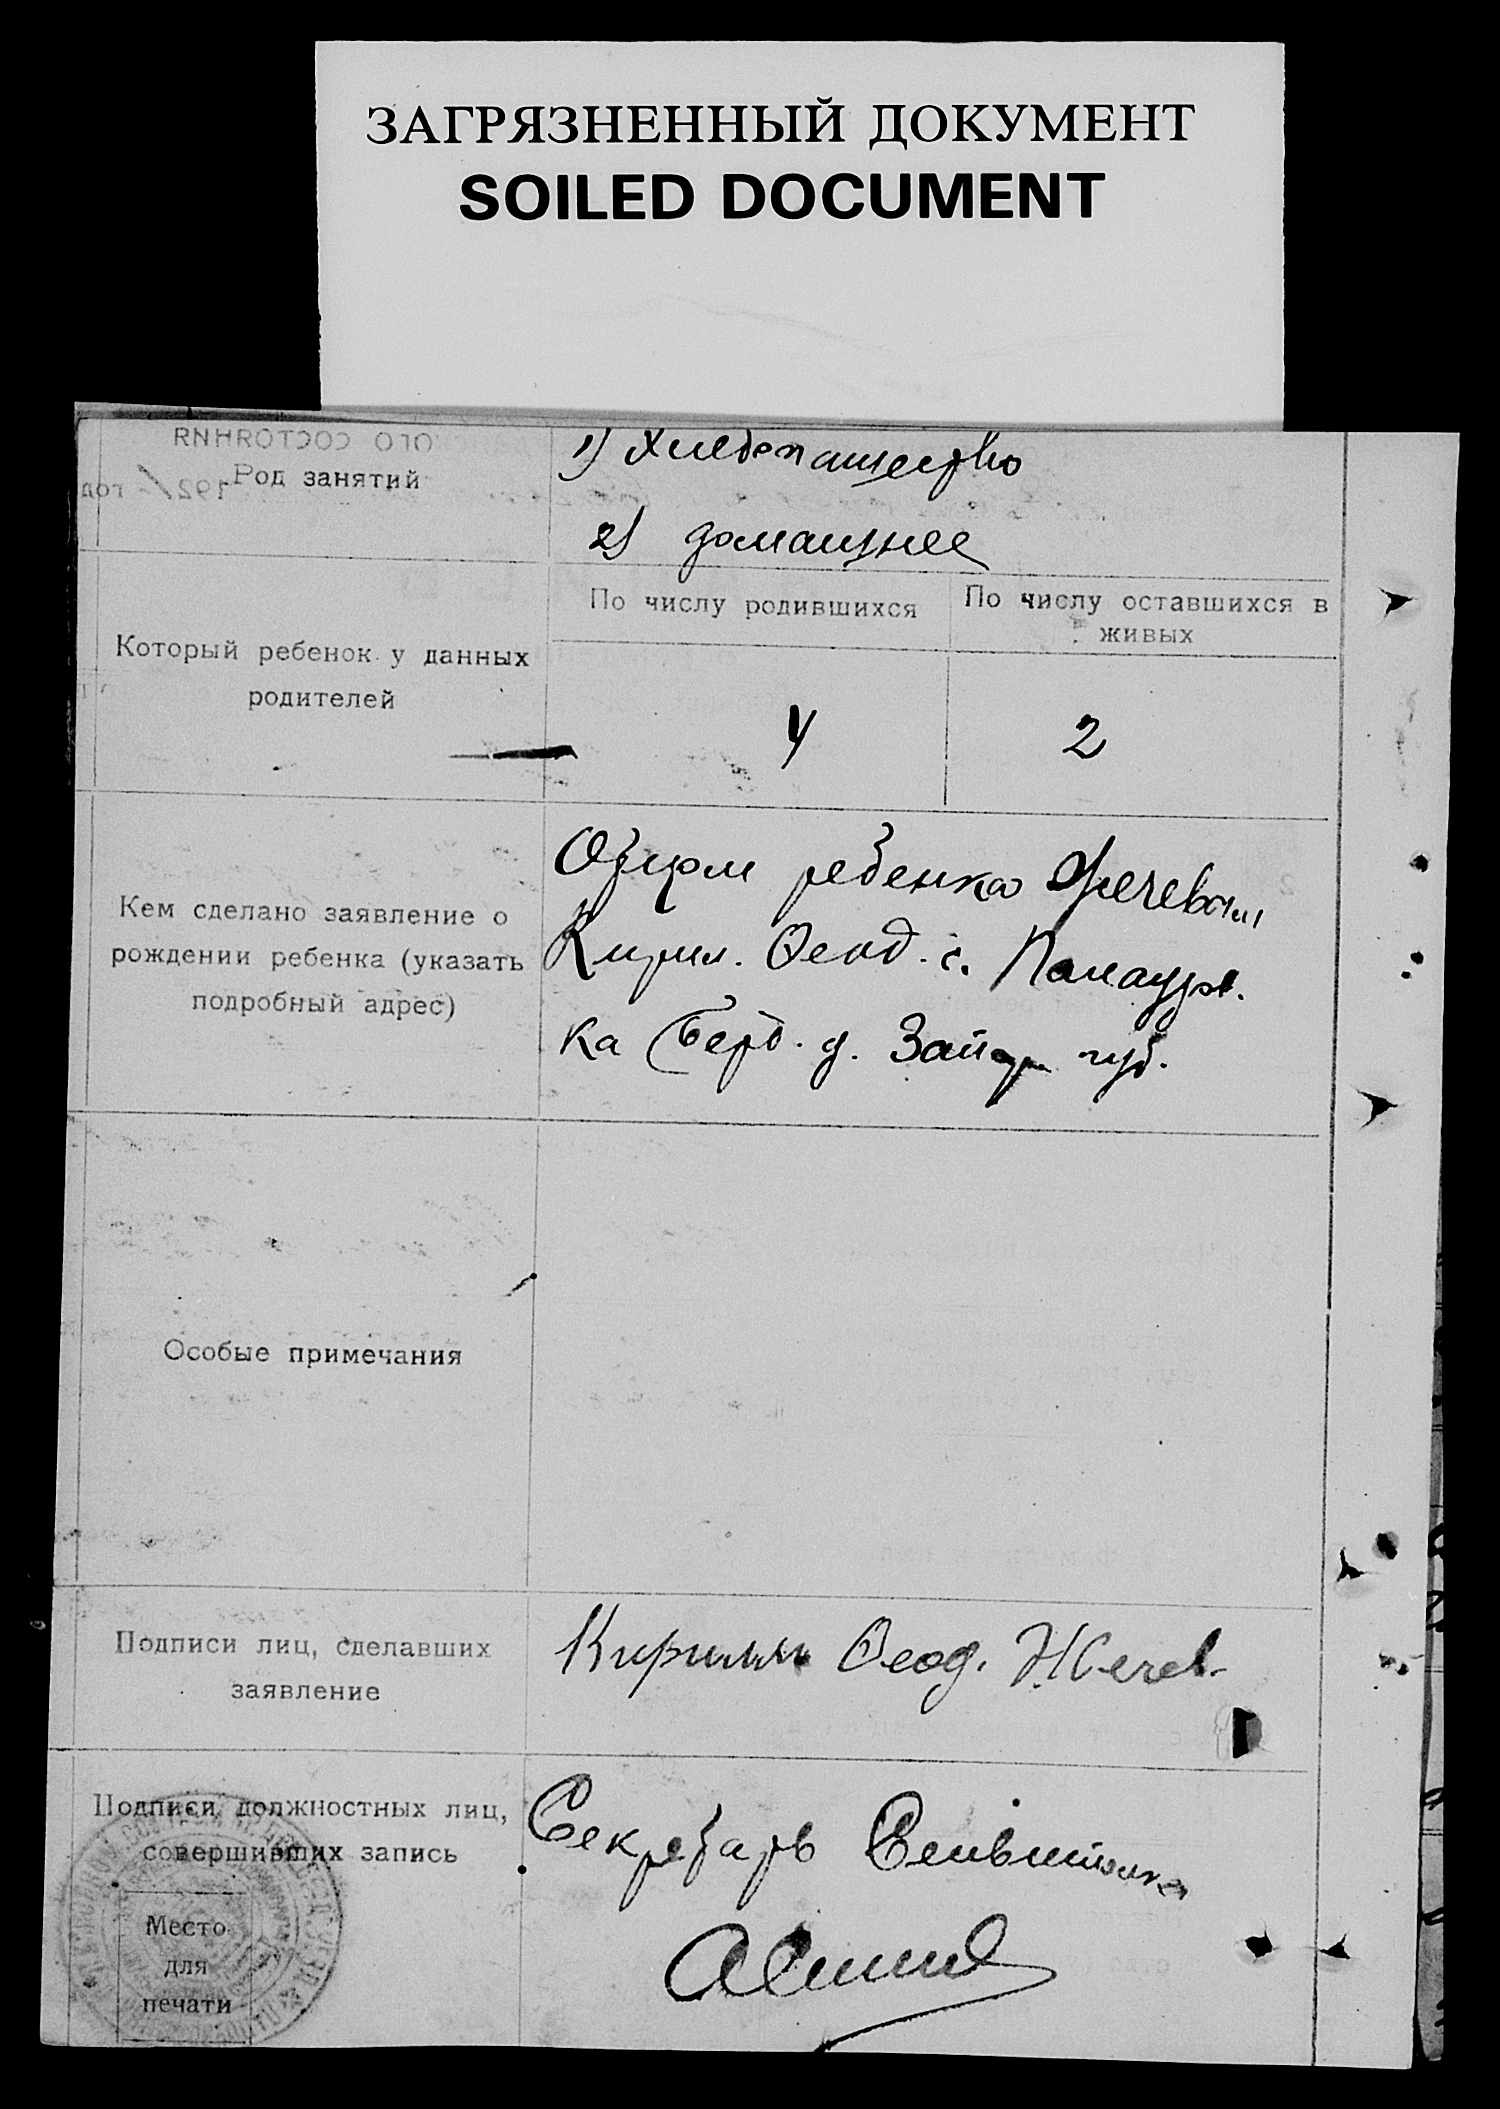 ЗАГРЯЗНЕННЫЙ ДОКУМЕНТ
SOILED DOCUMENT
Род занятий
1) Хлебопашество
2) домашнее
Который ребенок у данных
родителей
По числу родившихся
По числу оставшихся в
живых
4
2
Кем сделано заявление о
рождении ребенка (указать
подробный адрес)
Отцом ребенка Жечевым
Кирил. Феод. с.
ка Берд. у. Запор губ.
Особые примечания
Подписи лиц, сделавших
заявление
Кирилл Феод. Жечев
Подписи должностных лиц,
совершивших запись
Секретарь
Место
для
печати